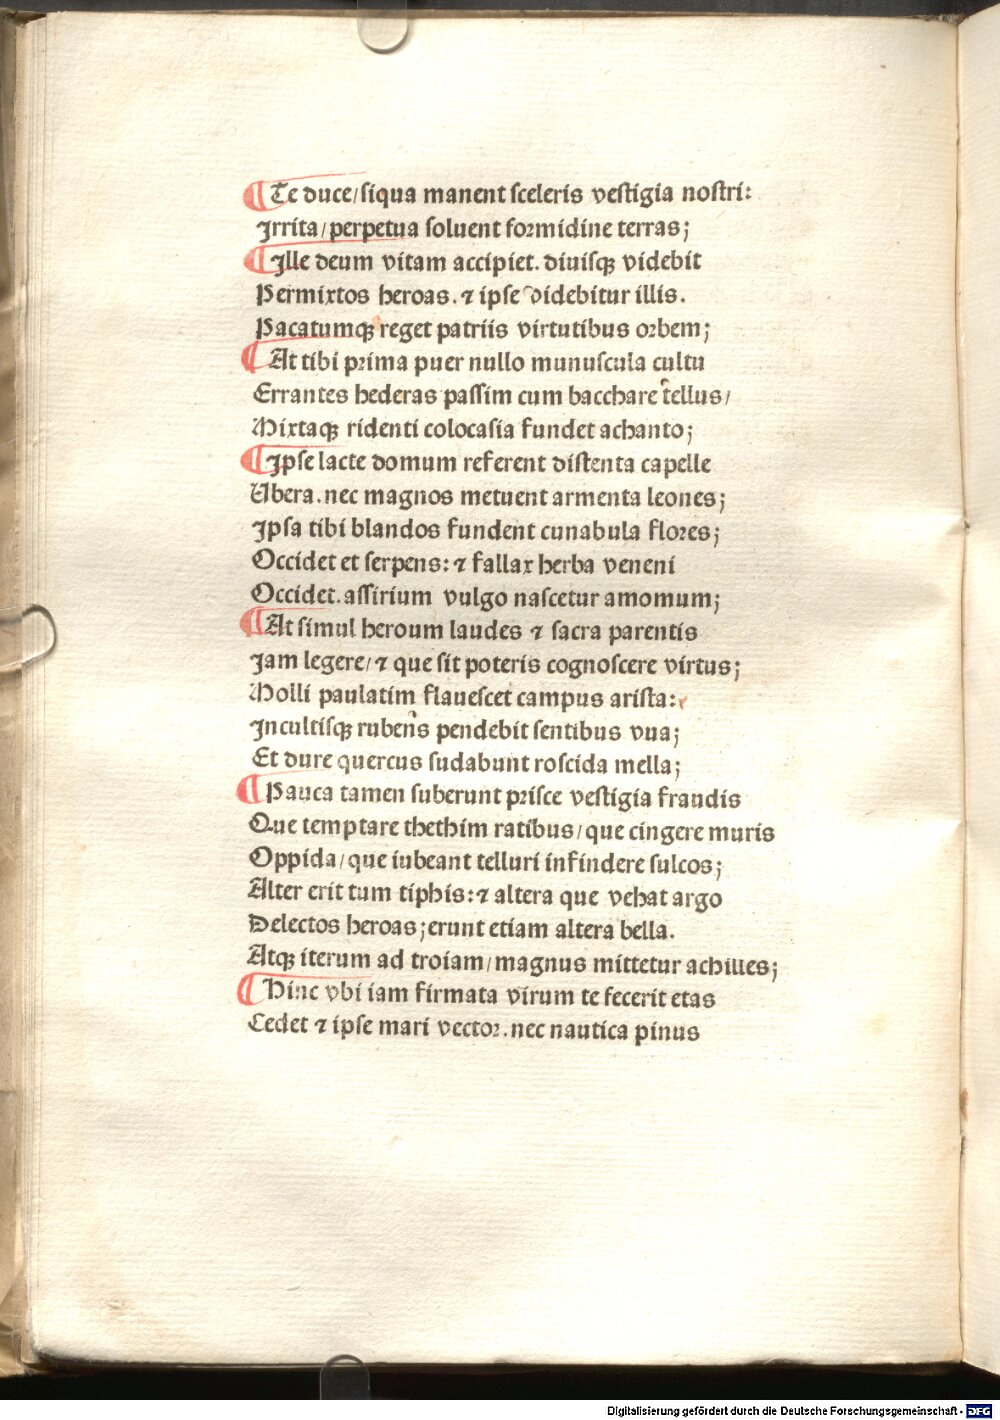 ¶Te duce/siqua manent sceleris vestigia nostri:
Jrrita/perpetua soluent formidine terras;
¶Jlle deum vitam accipiet. diuisqꝫ videbit
Permixtos heroas. ⁊ ipse videbitur illis.
Pacatumqꝫ reget patriis virtutibus orbem;
¶At tibi prima puer nullo munuscula cultu
Errantes hederas passim cum bacchare tellus/
Mixtaqꝫ ridenti colocasia fundet achanto;
¶Ipse lacte domum referent distenta capelle
Ubera. nec magnos metuent armenta leones;
Jpsa tibi blandos fundent cunabula flores;
Occidet et serpens: ⁊ fallax herba veneni
Occidet. assirium vulgo nascetur amomum;
¶At simul heroum laudes ⁊ sacra parentis
Jam legere/⁊ que sit poteris cognoscere virtus;
Molli paulatim flauescet campus arista:
Jncultisqꝫ rubens pendebit sentibus vua;
Et dure quercus sudabunt roscida mella;
¶Pauca tamen suberunt prisce vestigia fraudis
Que temptare thethim ratibus/que cingere muris
Oppida/que iubeant telluri infindere sulcos;
Alter erit tum tiphis: ⁊ altera que vehat argo
Delectos heroas; erunt etiam altera bella.
Atqꝫ iterum ad troiam/magnus mittetur achilles;
¶Hinc vbi iam firmata virum te fecerit etas
Cedet ⁊ ipse mari vector. nec nautica pinus
Digitalisierung gefördert durch die Deutsche Forschungsgemeinschaft - DFG